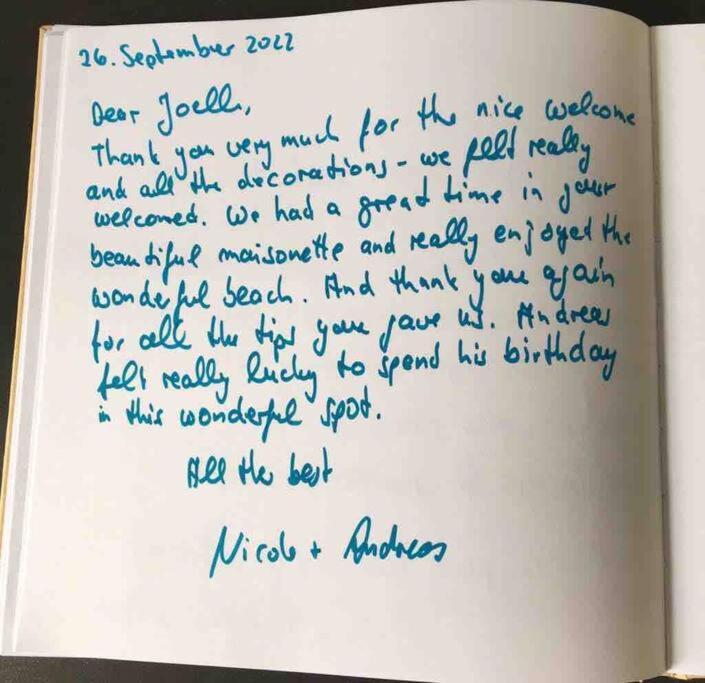 26. September 2022
Dear Joelle,
Thank you very much for the nice welcome
and all the decorations - we felt really
welcomed. We had a great time in your
beautiful maisonette and really enjoyed the
wonderful beach. And thank you again
for all the tips you gave us. Andreas
felt really lucky to spend his birthday
in this wonderful spot.
All the best
Nicole + Andreas